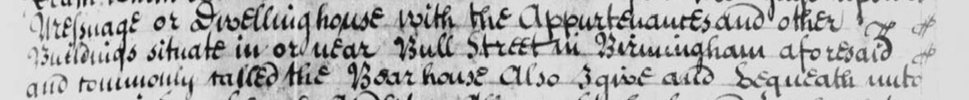 Messuage or Dwellinghouse with the Appurtenances and other
Buildings situate in or near Bull Street in Birmingham aforesaid
and commonly called the Bear house Also I give and bequeath unto